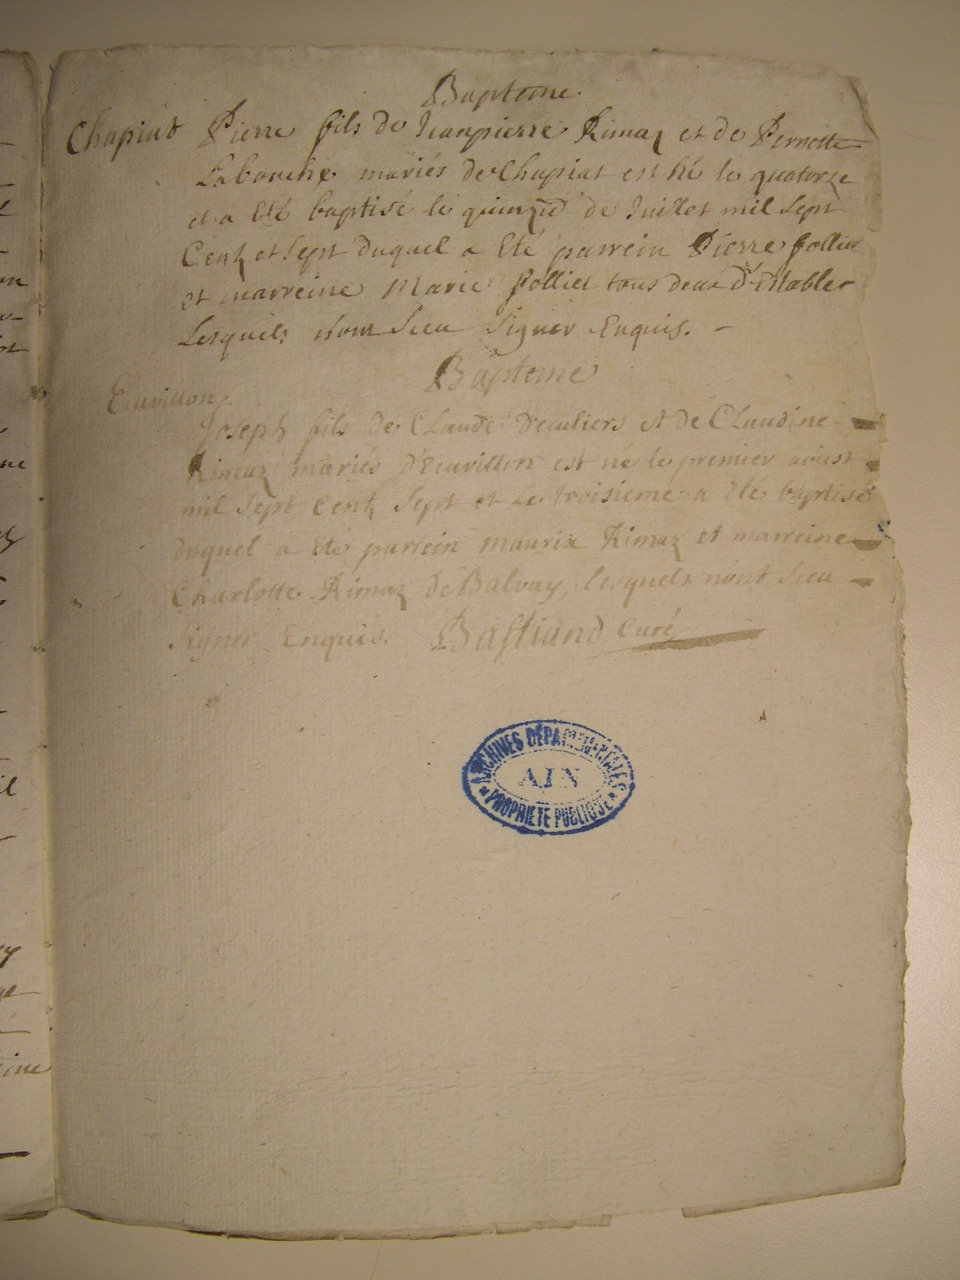 Bapteme
Chapiat Pierre fils de Jeanpierre Rimaz et de Pernette
Labouche mariés de Chapiat est né le quatorze
et a Eté baptisé le quinzie de Juillet mil Sept
Centz et Sept duquel a Eté parrein Pierre folliet
et marreine Marie folliet tous deux d'Etables
Lesquels n'ont Sceu Signer Enquis.
Bapteme
Ecuvillon
Joseph fils de Claude Decaliers et de Claudine
Rimaz mariés d'Ecuvillon est né le premier aoust
mil Sept Centz Sept et Le troisieme a Eté baptisé
duquel a Eté parrein maurix Rimaz et marreine
Charlotte Rimaz de Balvay, lesquels n'ont Sceu
Signer Enquis Bastiand Curé
ARCHIVES DÉPARTEMENTALES
AIN
PROPRIÉTÉ PUBLIQUE